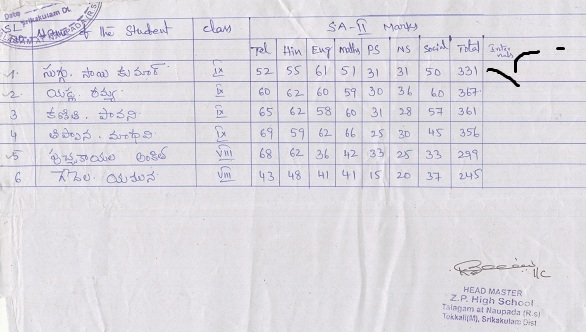 Date
Srikakulam Dt
SL Name of the Student class SA-II Marks
Tel Hin Eng maths PS NS Social Total Inter
1. సాయి కుమార్ IX 52 55 61 51 31 31 50 331
2. రమ్య IX 60 62 60 59 30 36 60 367
3 పావని IX 65 62 58 60 31 28 57 361
4 మాధవి IX 69 59 62 66 25 30 45 356
5 VIII 68 62 36 42 33 25 33 299
6 యమున VIII 43 48 41 41 15 20 37 245
I/C
HEAD MASTER
Z.P. High School
Talagam at Naupada (R.s)
Tekkali(M), Srikakulam Dist